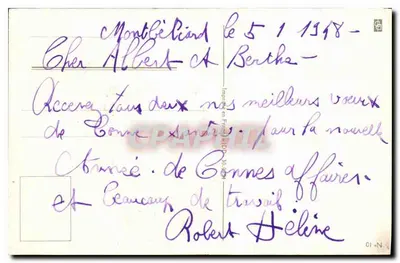 Montbéliard le 5 1 1958 -
Cher Albert et Berthe -
Recevez tous deux nos meilleurs voeux
de bonne santé. pour la nouvelle
Année. de bonnes affaires
et beaucoup de travail
Robert Hélène
CPARAMA